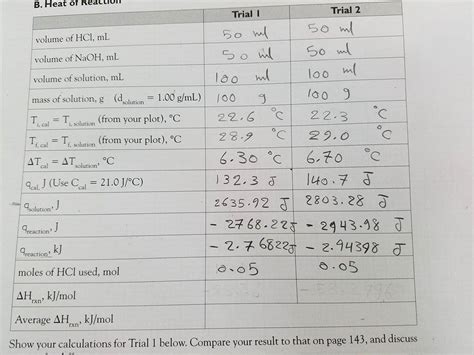 B. Heat of Reaction
Trial 1 Trial 2
volume of HCl, mL 50 ml 50 ml
volume of NaOH, mL 50 ml 50 ml
volume of solution, mL 100 ml 100 ml
mass of solution, g (d_solution = 1.00 g/mL) 100 g 100 g
T_i, cal = T_i, solution (from your plot), °C 22.6 °C 22.3 °C
T_f, cal = T_f, solution (from your plot), °C 28.9 °C 29.0 °C
ΔT_cal = ΔT_solution, °C 6.30 °C 6.70 °C
q_cal, J (Use C_cal = 21.0 J/°C) 132.3 J 140.7 J
q_solution, J 2635.92 J 2803.28 J
q_reaction, J - 2768.22 J - 2943.98 J
q_reaction, kJ - 2.76822 J - 2.94398 J
moles of HCl used, mol 0.05 0.05
ΔH_rxn, kJ/mol
Average ΔH_rxn, kJ/mol
Show your calculations for Trial 1 below. Compare your result to that on page 143, and discuss